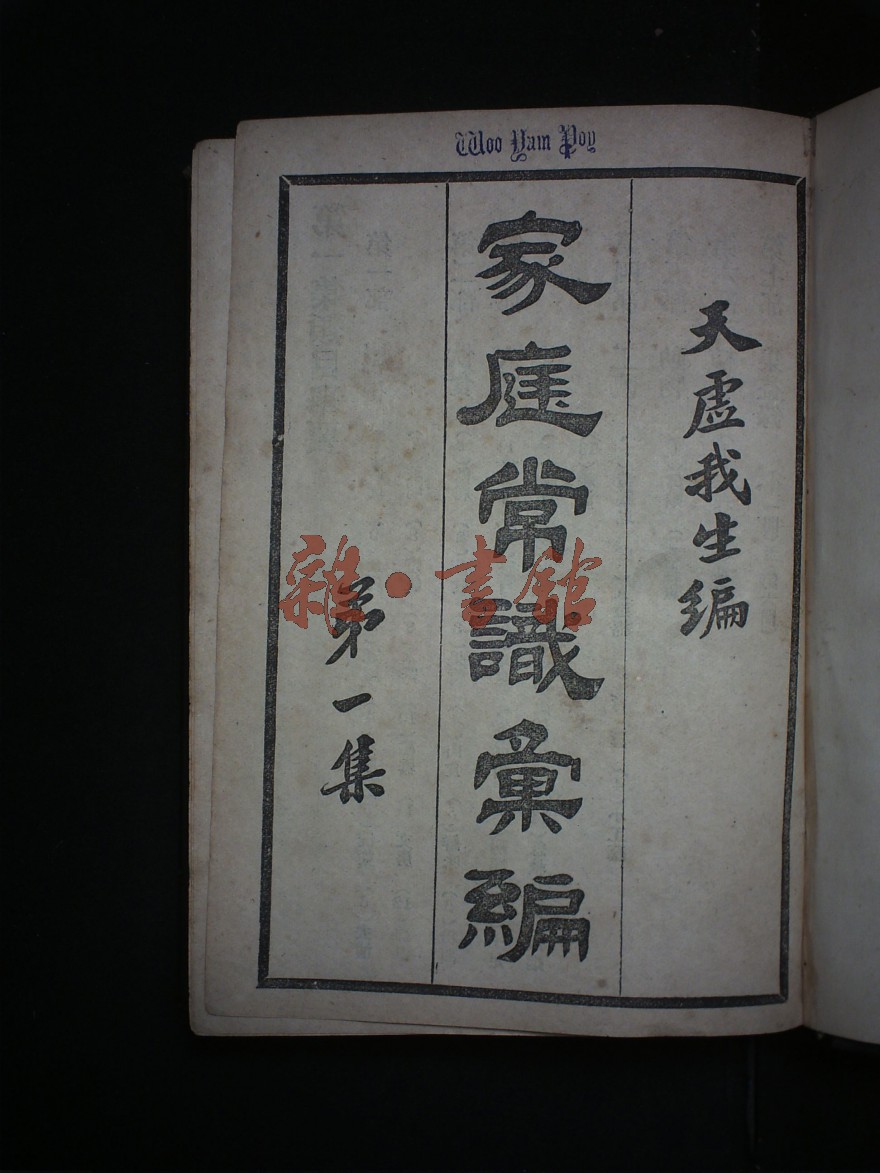 Woo Yam Poy
天虛我生編
家庭常識彙編
第一集
雜·書館